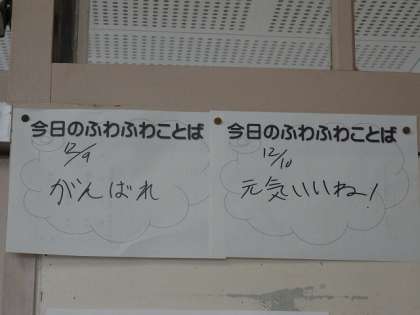 今日のふわふわことば
12/9
がんばれ
今日のふわふわことば
12/10
元気いいね!